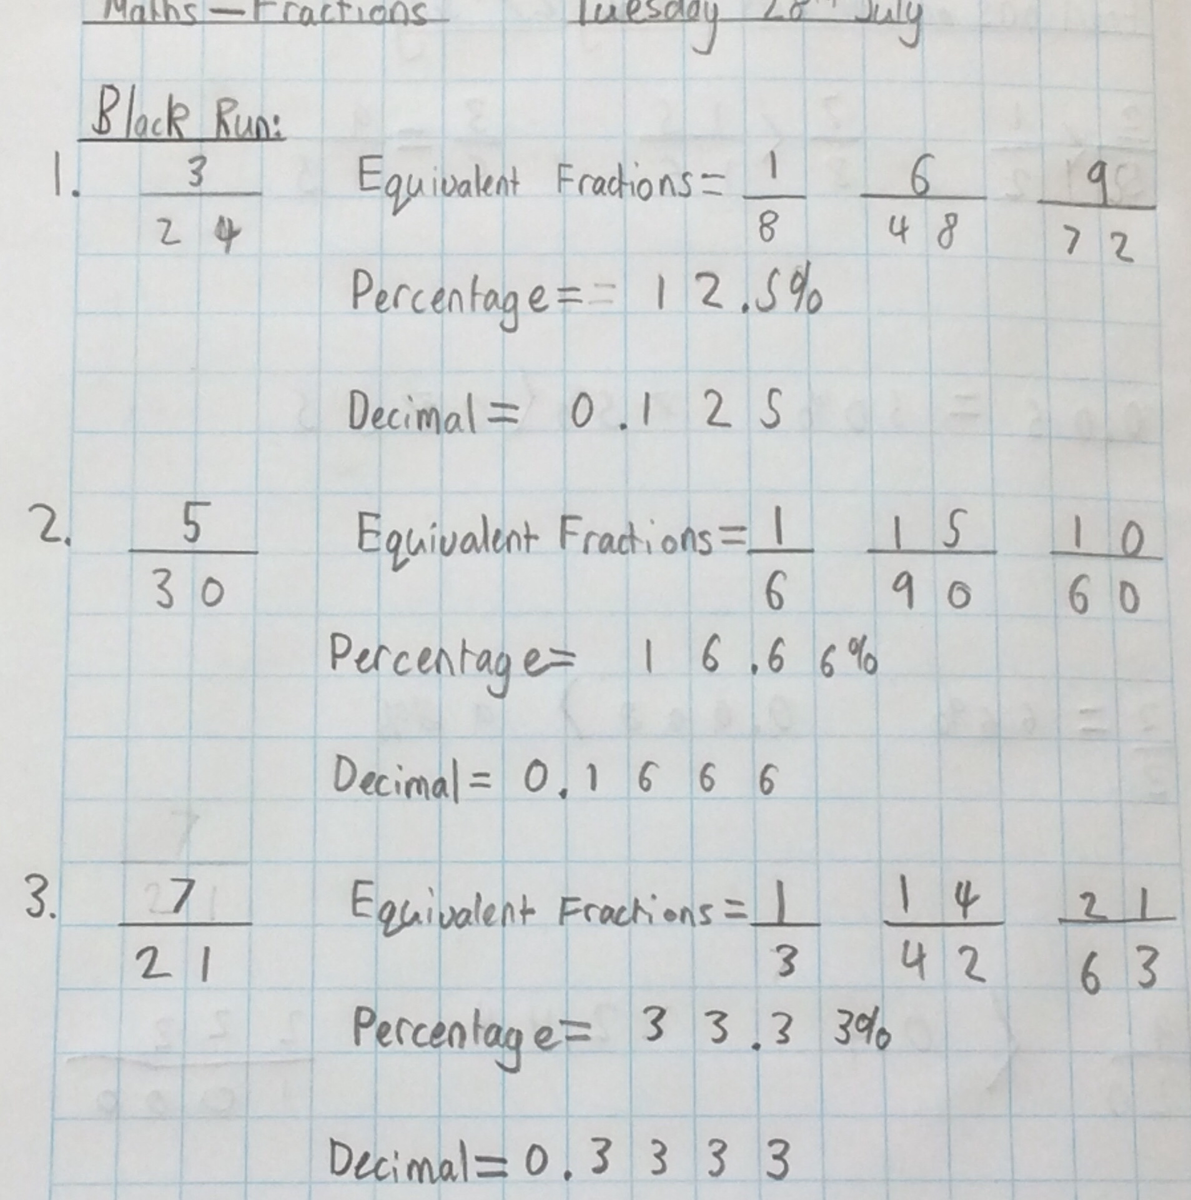 Maths – Fractions Tuesday 28th July
Black Run:
1. 3/24 Equivalent Fractions = 1/8 6/48 9/72
Percentage = = 12.5%
Decimal = 0.125
2. 5/30 Equivalent Fractions = 1/6 15/90 10/60
Percentage = 16.66%
Decimal = 0.1666
3. 7/21 Equivalent Fractions = 1/3 14/42 21/63
Percentage = 33.33%
Decimal = 0.3333